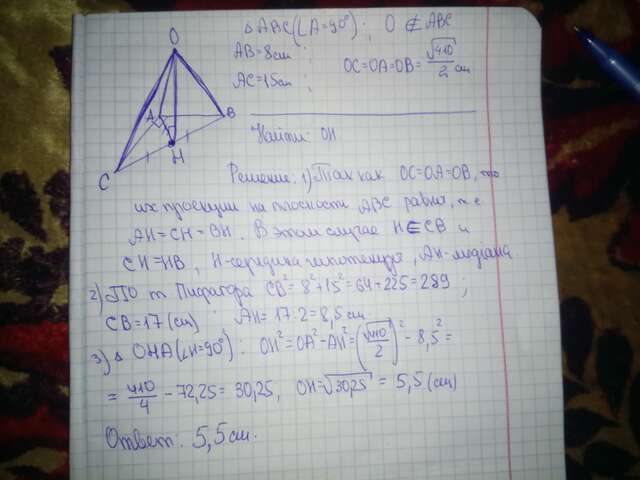 △ABC(∠A=90°); O ∉ ABC
AB=8см;
AC=15см; OC=OA=OB= √410/2 см
Найти: OH
O
A
B
H
C
Решение: 1) Так как OC=OA=OB, то
их проекции на плоскости ABC равны, т.е
AH=CH=BH. В этом случае H∈CB и
CH=HB, H-середина гипотенузы, AH-медиана
2) По т Пифагора CB²=8²+15²=64+225=289,
CB=17(см); AH=17:2=8,5см
3) △ OHA(∠H=90°): OH²=OA²-AH²=(√410/2)²-8,5²=
=410/4-72,25=30,25, OH=√30,25=5,5(см)
Ответ: 5,5см.